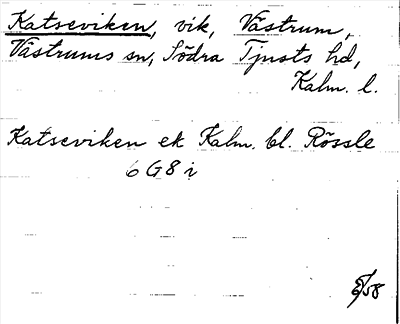 Katseviken, vik, Västrum,
Västrums sn, Södra Tjusts hd,
Kalm. l.
Katseviken ek Kalm. bl. Rössle
6G8i
/58